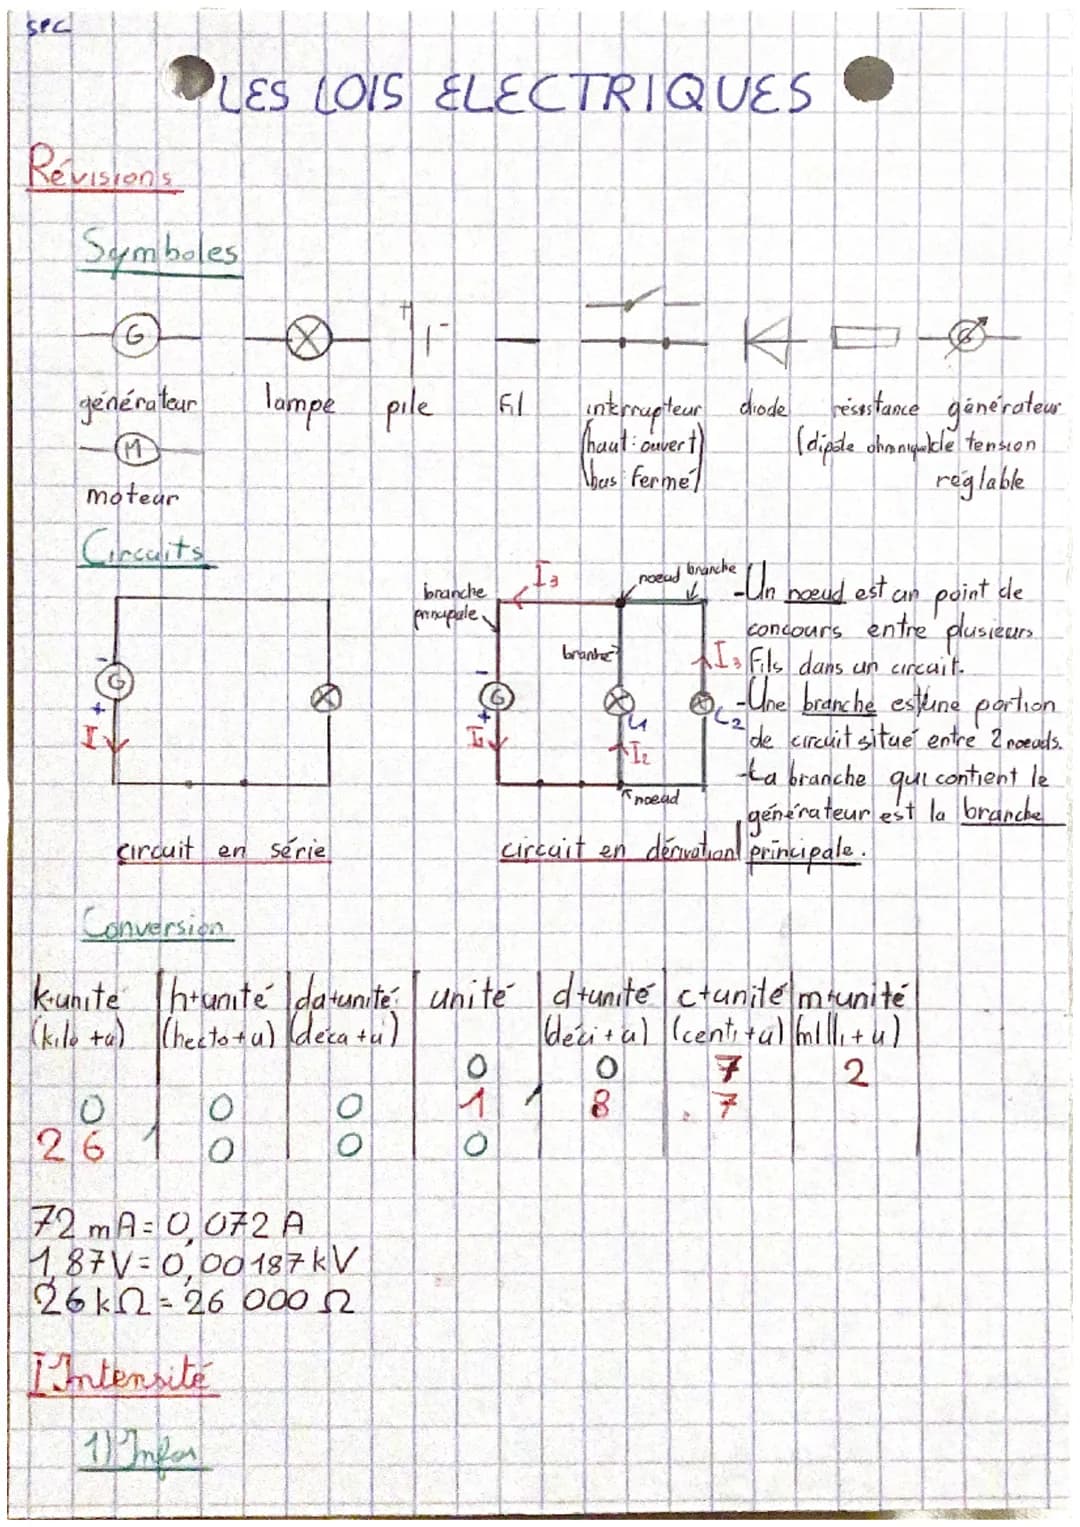 SPC
LES LOIS ELECTRIQUES
Révisions
Symboles
G
+ -
G
générateur
lampe
pile
fil
interrupteur
(haut: ouvert)
(bas: fermé)
diode
résistance
(dipôle ohmique)
générateur
de tension
réglable
M
moteur
Circuits
-
G
+
I
circuit en série
branche
principale
I3
noeud
branche
branche
I3
-
G
+
I1
L1
L2
I2
noeud
circuit en dérivation
-Un noeud est un point de
concours entre plusieurs
fils dans un circuit.
-Une branche est une portion
de circuit situé entre 2 noeuds.
-La branche qui contient le
générateur est la branche
principale.
Conversion
k+unité h+unité da+unité unité d+unité c+unité m+unité
(kilo +u) (hecto+u) (déca +u) (déci+u) (centi+u) (milli+u)
0 0 7 2
0 , 0 0 1 , 8 7
2 6 0 0 0
72 mA = 0,072 A
1,87V = 0,00187 kV
26 kΩ = 26 000 Ω
I Intensité
1) Infos